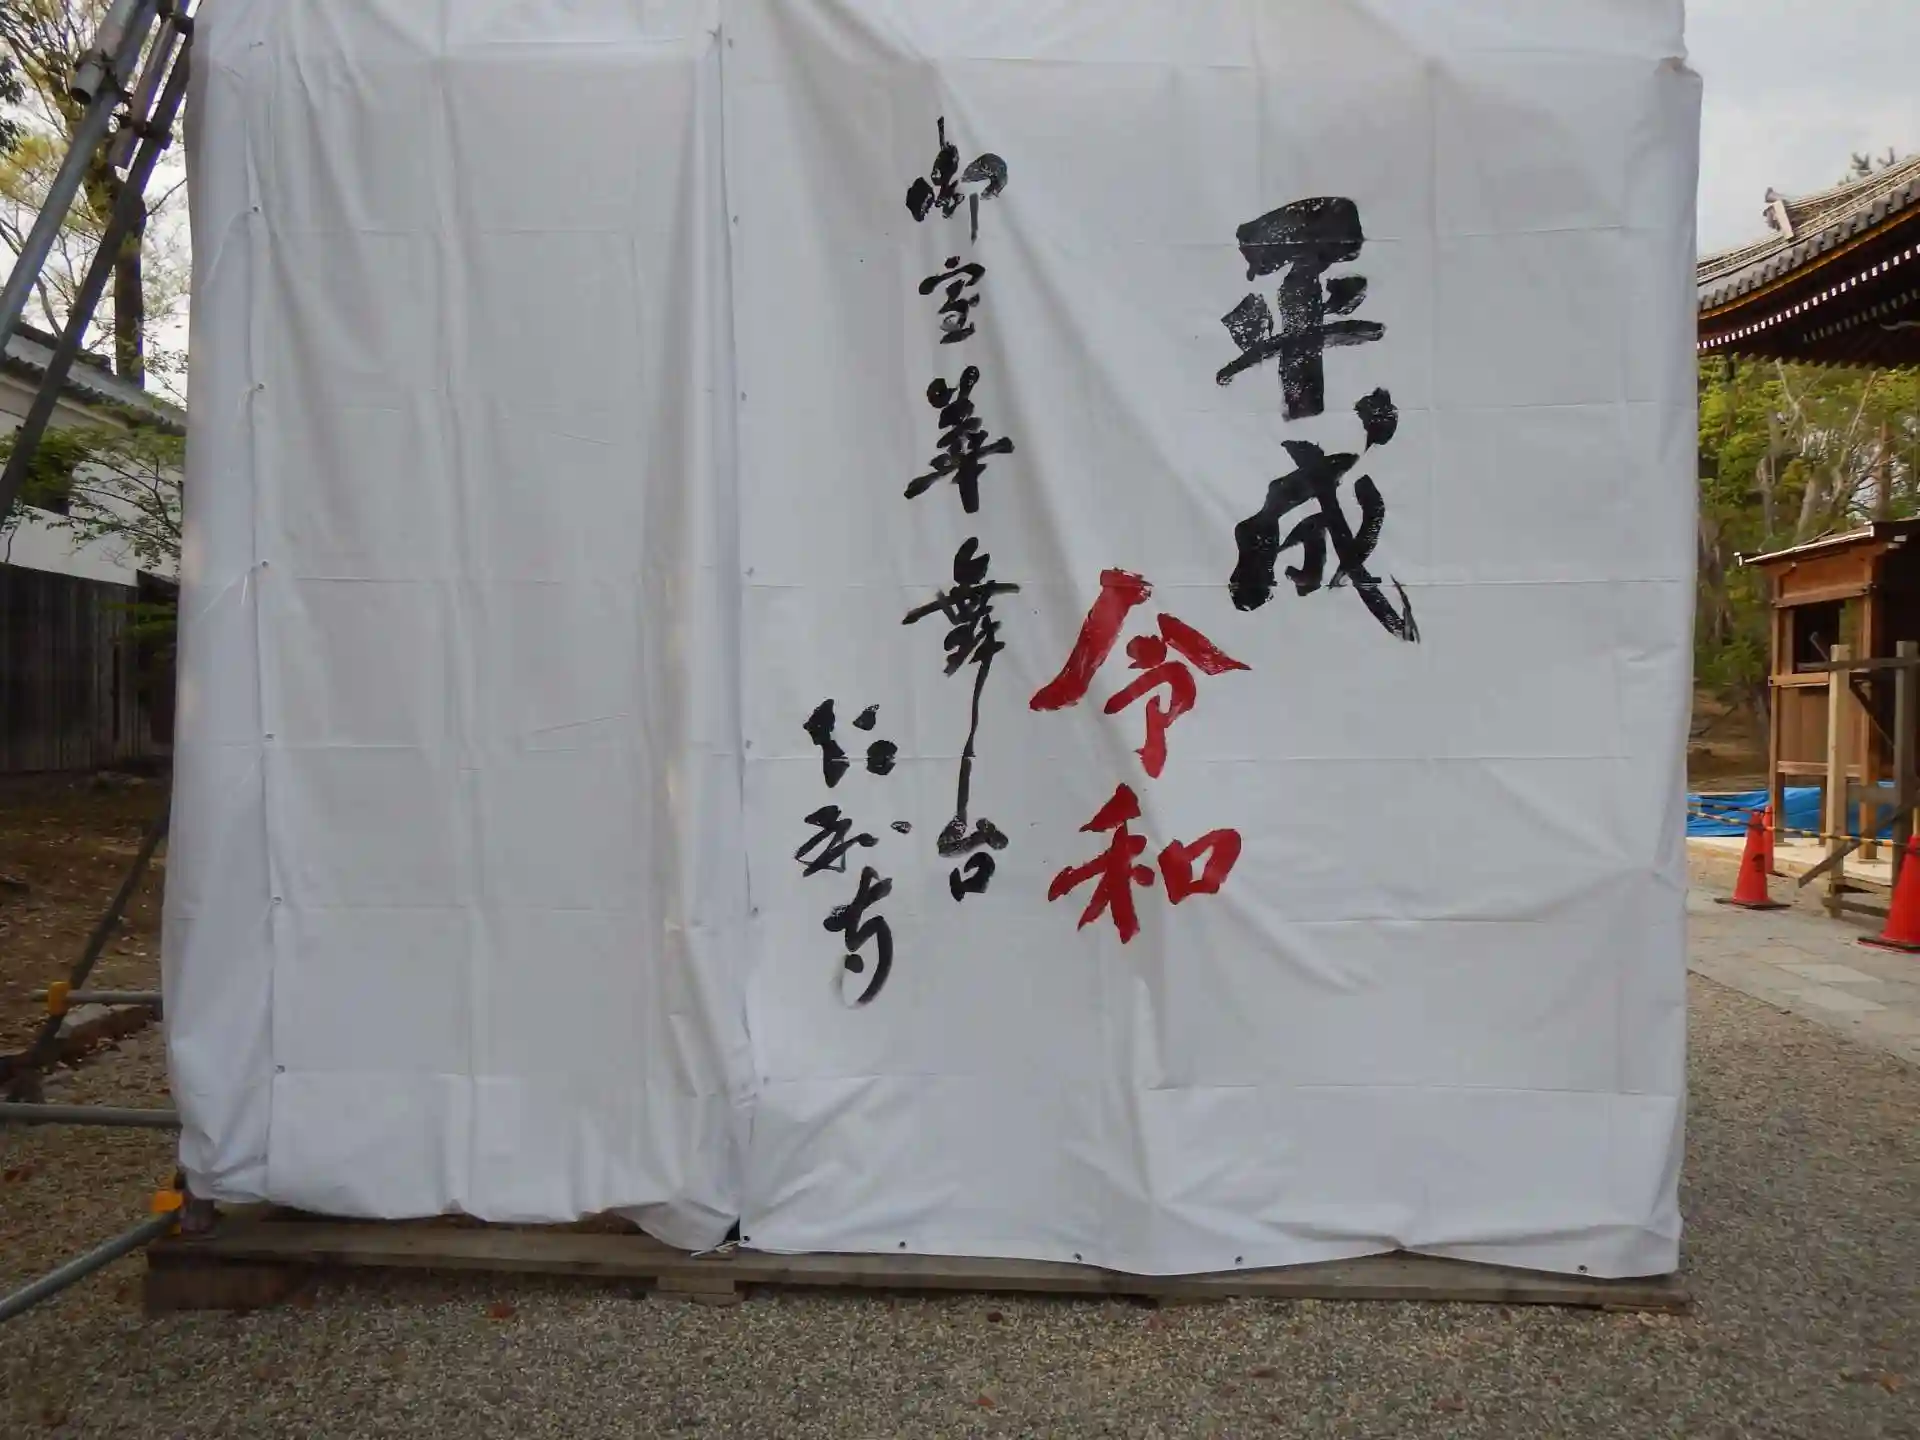 平成
令和
御室華舞台
仁和寺